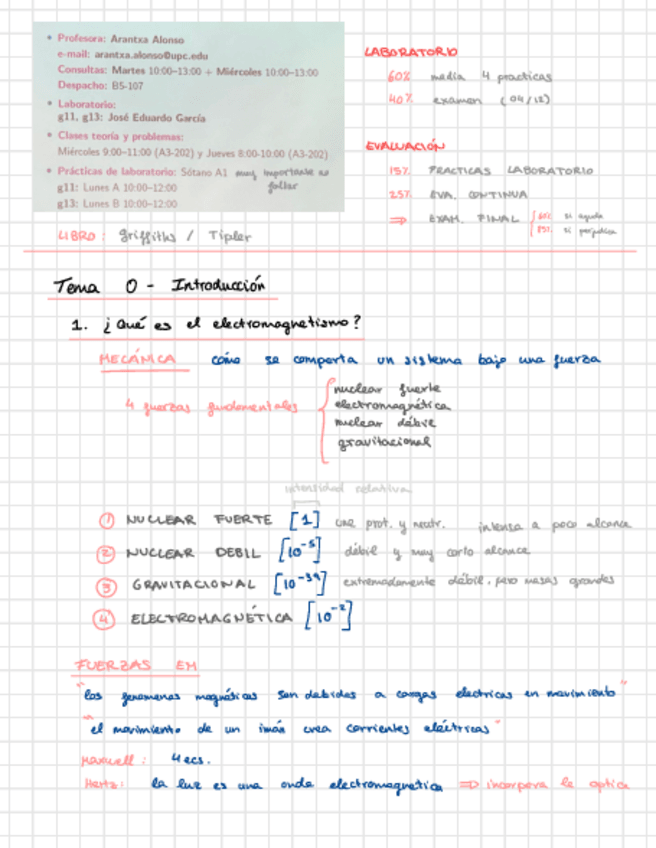 • Profesora: Arantxa Alonso
e-mail: arantxa.alonso@upc.edu
Consultas: Martes 10:00–13:00 + Miércoles 10:00–13:00
Despacho: B5-107
• Laboratorio:
g11, g13: José Eduardo García
• Clases teoría y problemas:
Miércoles 9:00–11:00 (A3-202) y Jueves 8:00-10:00 (A3-202)
• Prácticas de laboratorio: Sótano A1 muy importante no
g11: Lunes A 10:00–12:00 faltar
g13: Lunes B 10:00–12:00
LIBRO: Griffiths / Tipler
LABORATORIO
60% media 4 practicas
40% examen (04/12)
EVALUACIÓN
15% PRACTICAS LABORATORIO
25% EVA. CONTINUA
⇒ EXAM. FINAL
60% si ayuda
85% si perjudica
Tema 0 - Introducción
1. ¿Qué es el electromagnetismo?
MECÁNICA cómo se comporta un sistema bajo una fuerza
4 fuerzas fundamentales
nuclear fuerte
electromagnética
nuclear débil
gravitacional
intensidad relativa
① NUCLEAR FUERTE [1] une prot. y neutr. intensa a poco alcance
② NUCLEAR DEBIL [10⁻⁵] débil y muy corto alcance
③ GRAVITACIONAL [10⁻³⁹] extremadamente débil, pero masas grandes
④ ELECTROMAGNÉTICA [10⁻²]
FUERZAS EM
"los fenomenos magnéticos son debidos a cargas electricas en movimiento"
"el movimiento de un imán crea corrientes eléctricas"
Maxwell: 4 ecs.
Hertz: la luz es una onda electromagnética ⇒ incorpora la optica